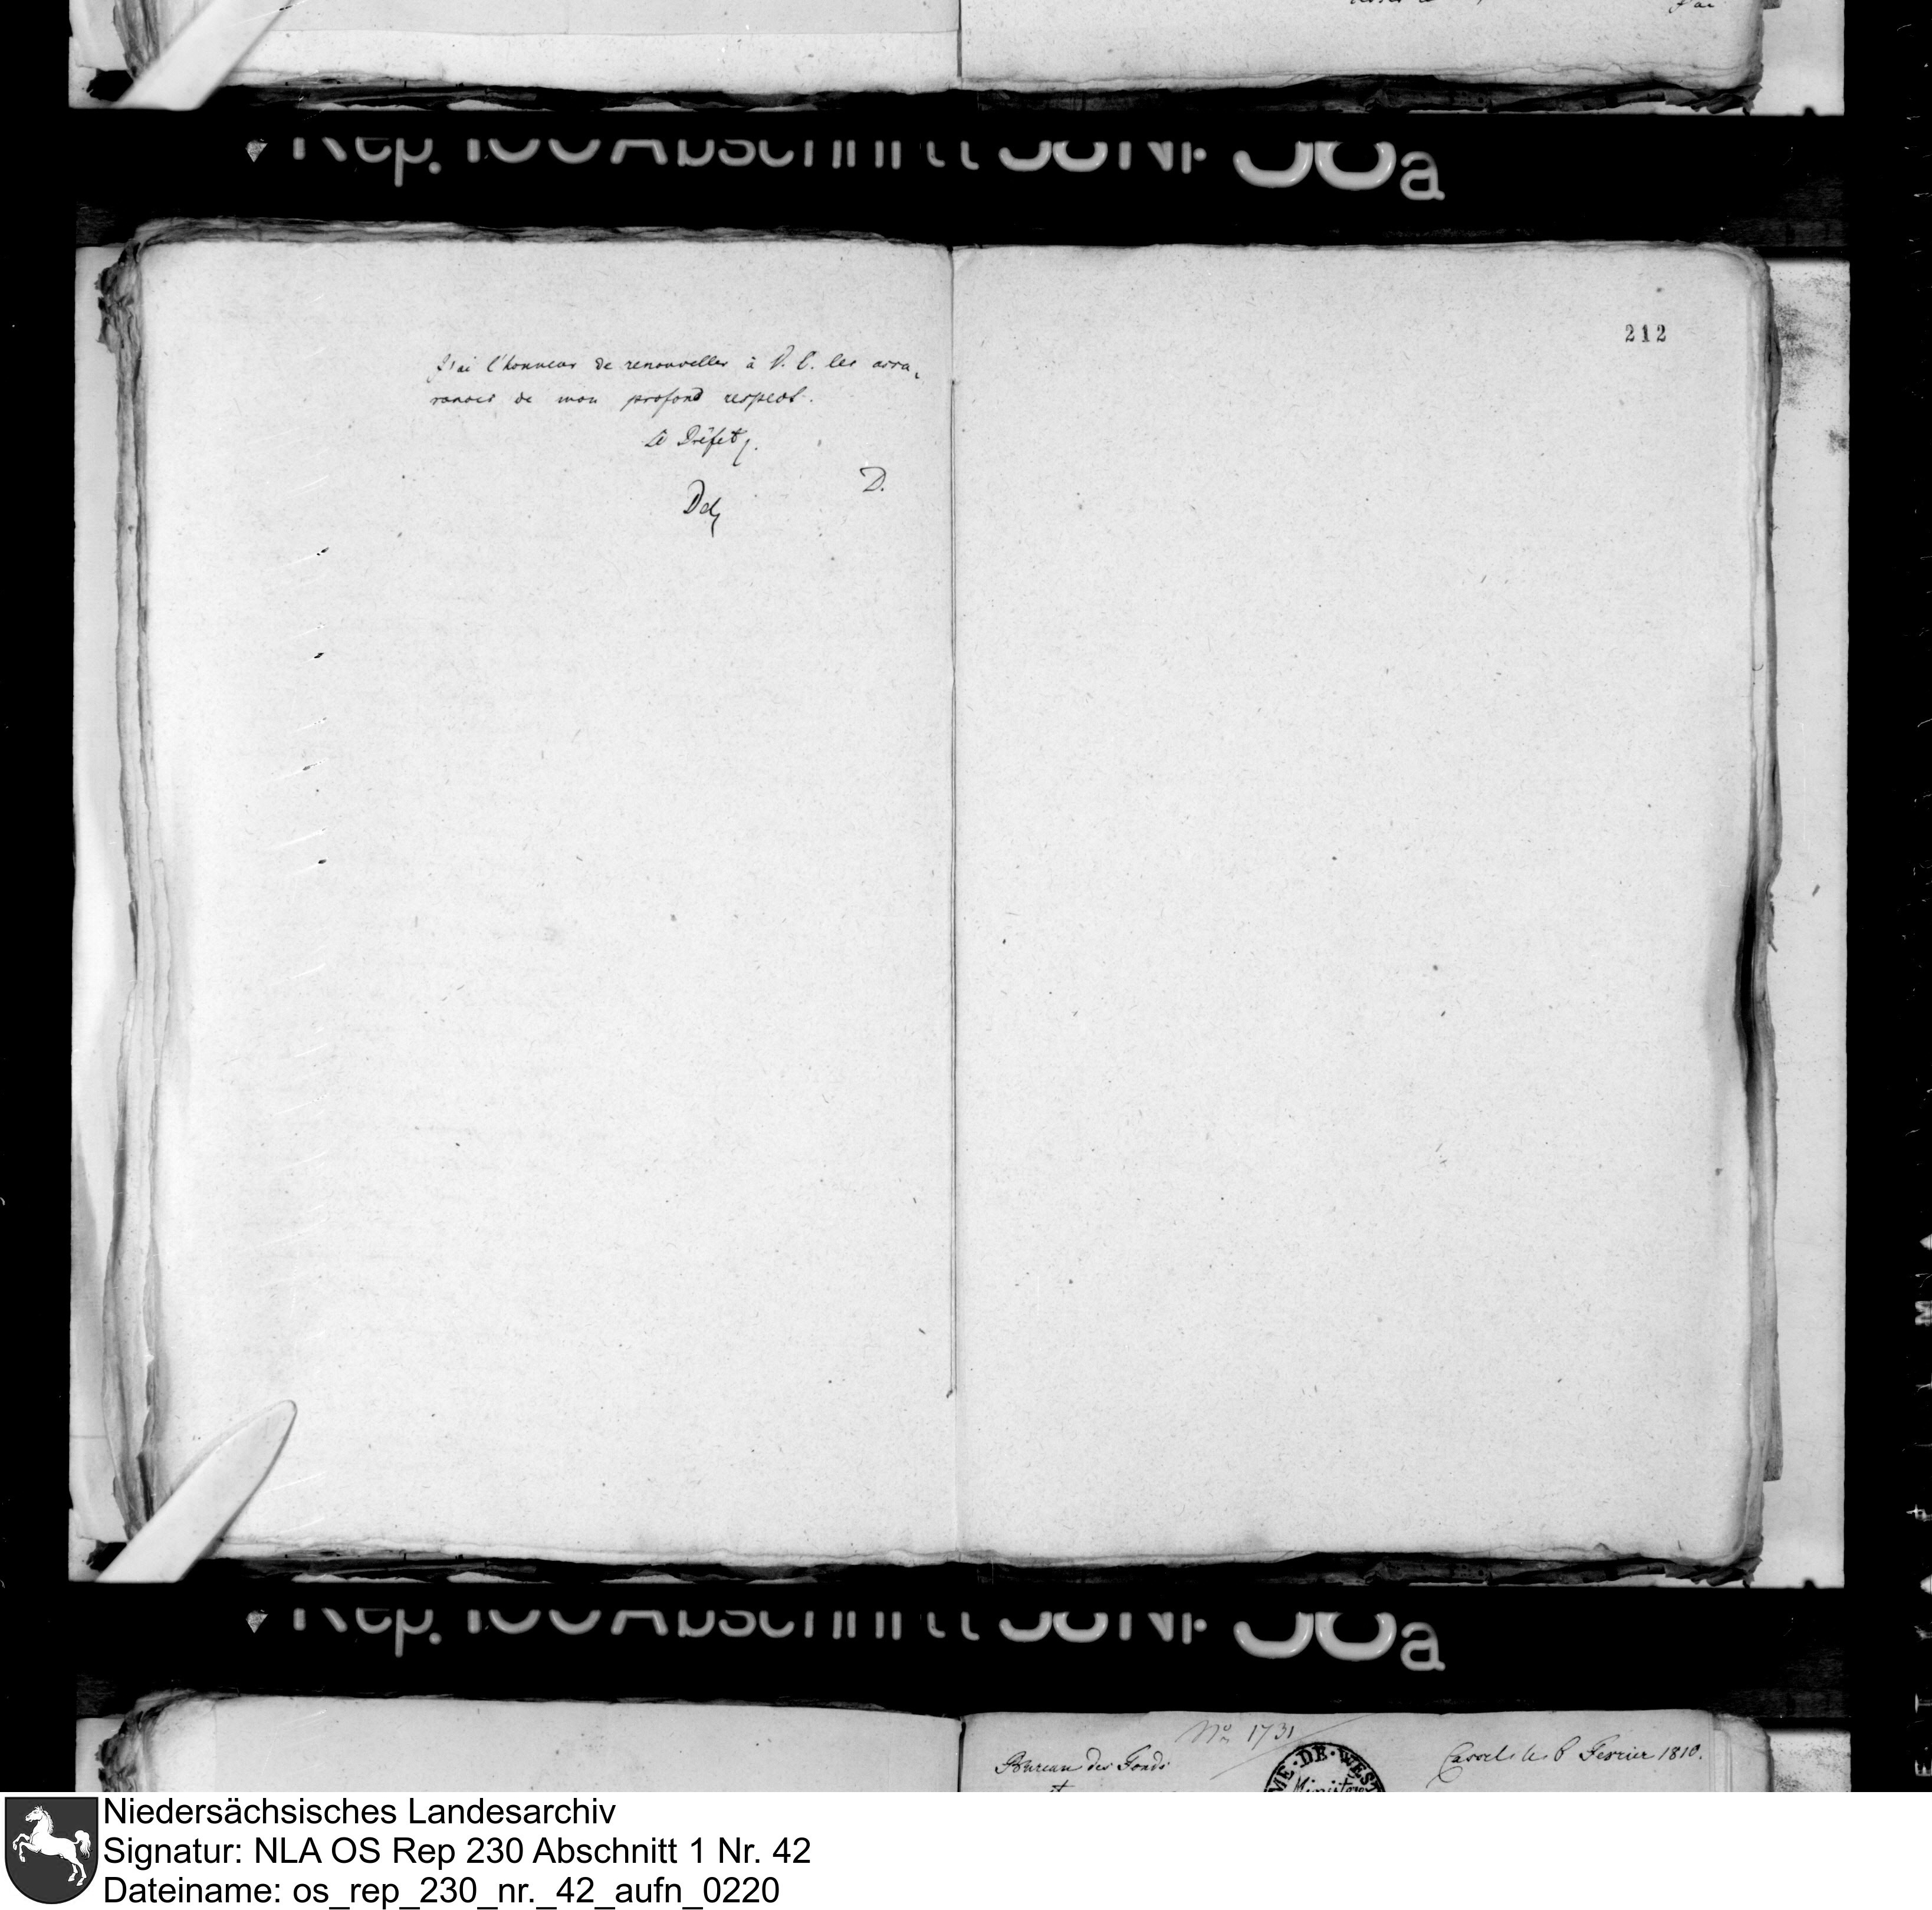 Rep. 100 Abschnitt 38 Nr. 38a
212
J'ai l'honneur de renouveller à V. E. les assu-
rances de mon profond respect.
Le Préfet
D.
Rep. 100 Abschnitt 38 Nr. 38a
No. 1731
Bureau des Fonds
et
ME·DE·WEST
Ministère
Cassel le 6 Fevrier 1810.
Niedersächsisches Landesarchiv
Signatur: NLA OS Rep 230 Abschnitt 1 Nr. 42
Dateiname: os_rep_230_nr._42_aufn_0220